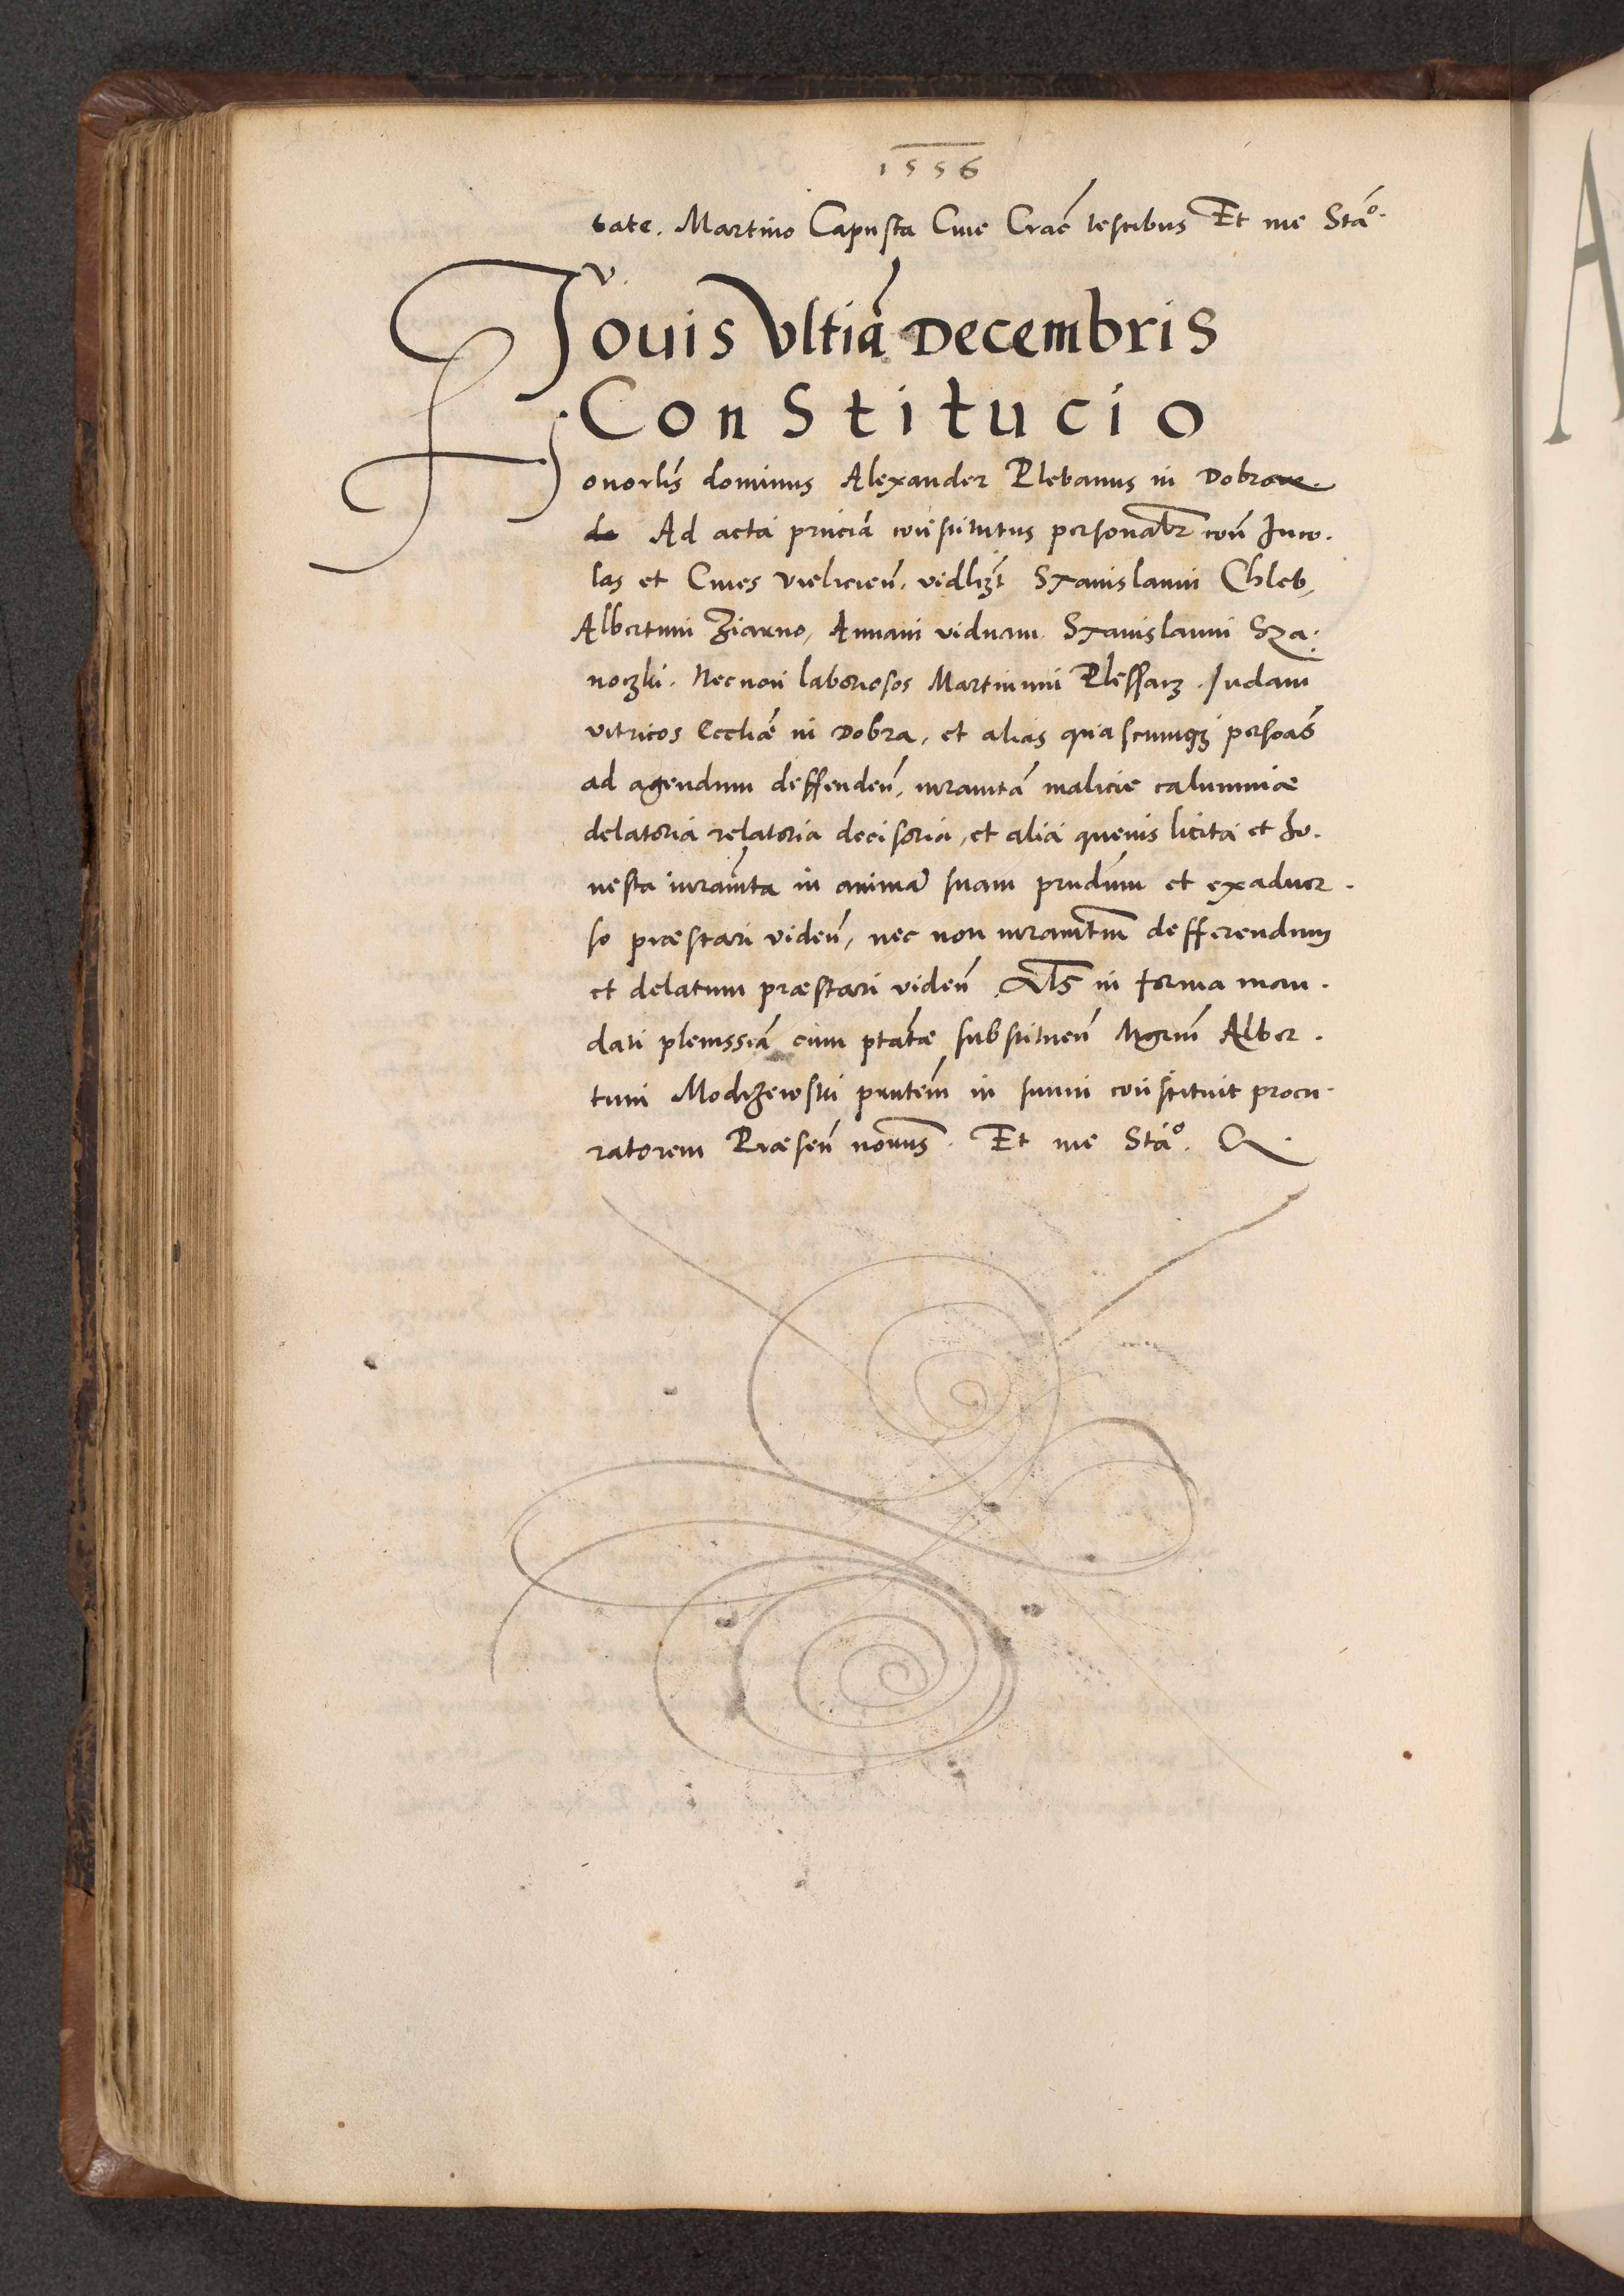 1556
bate. Martino Capusta Ciue Crac̄ testibus Et me Stā°.
Jouis Vltiā Decembris
Constitucio
Honorlis̄ dominus Alexander Plebanus in Dobra
Ad acta pn̄ciā constitutus personalr̄ con̄ Inco.
las et Ciues vieliczien̄. vidlizt̄ Stanislaum Chleb,
Albertum Ziarno, Annam viduam Stanislaum Sza:
noczki. Necnon laboriosos Martinum Plessarz. Judam
vitricos Eccliǣ in Dobra, et alias quascumqz persoas̄
ad agendum deffenden̄, iuramtā malicie calumniæ
delatoria relatoria decisoria, et alia queuis licita et ho.
nesta iuramta in animā suam prn̄dum et exaduer.
so præstari viden̄, nec non iuramtm̄ defferendum
et delatum præstari viden̄ Als̄ in forma man.
dati plenissiā cum ptatæ substituen̄ Mgrum̄ Alber.
tum Modrzewski pnn̄tem in suum constituit procu.
ratorem Præsen̄ nouus̄. Et me Stā°. &.
A